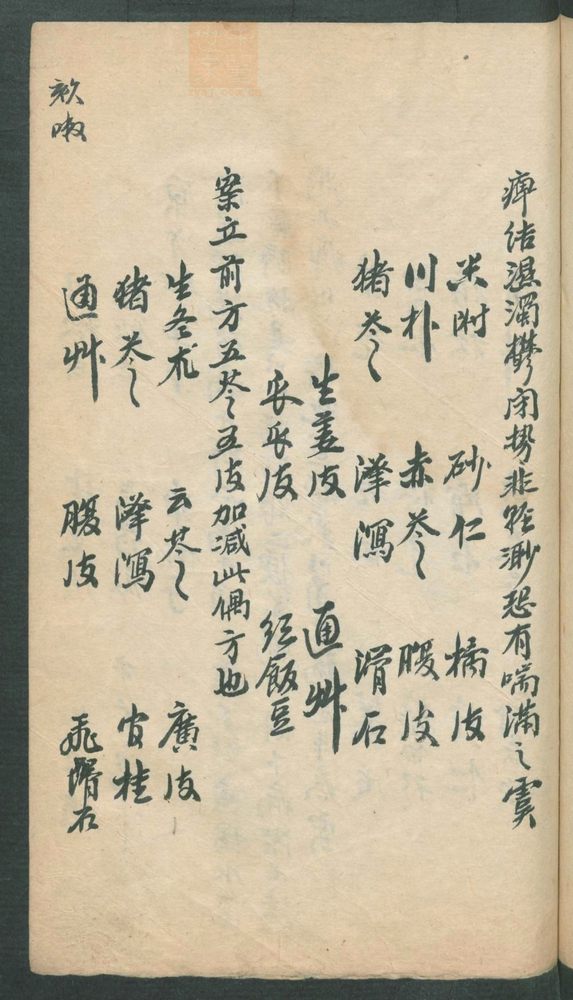 痺结濕濁欝闭势非轻渺恐有喘满之虞
附 砂仁 橘皮
川朴 赤苓 腹皮
猪苓 澤瀉 滑石
生姜皮 通艸
皮 红飯豆
案立前方五苓五皮加减此偶方也
生冬朮 云苓 廣皮
猪苓 澤瀉 官桂
通艸 腹皮 飛滑石
欬嗽